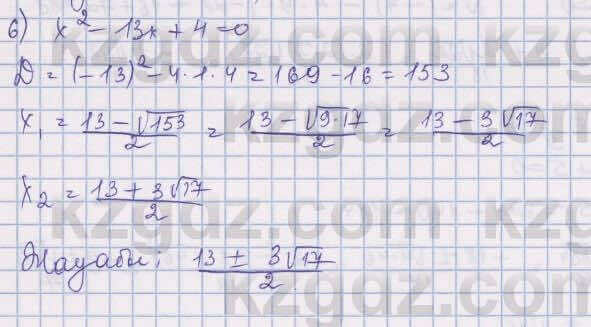 6) x² - 13x + 4 = 0
D = (-13)² - 4·1·4 = 169 - 16 = 153
x₁ = (13 - √153)/2 = (13 - √(9·17))/2 = (13 - 3√17)/2
x₂ = (13 + 3√17)/2
Жауабы: (13 ± 3√17)/2
kzgdz.com kzgdz.com
kzgdz.com kzgdz.com
kzgdz.com kzgdz.com